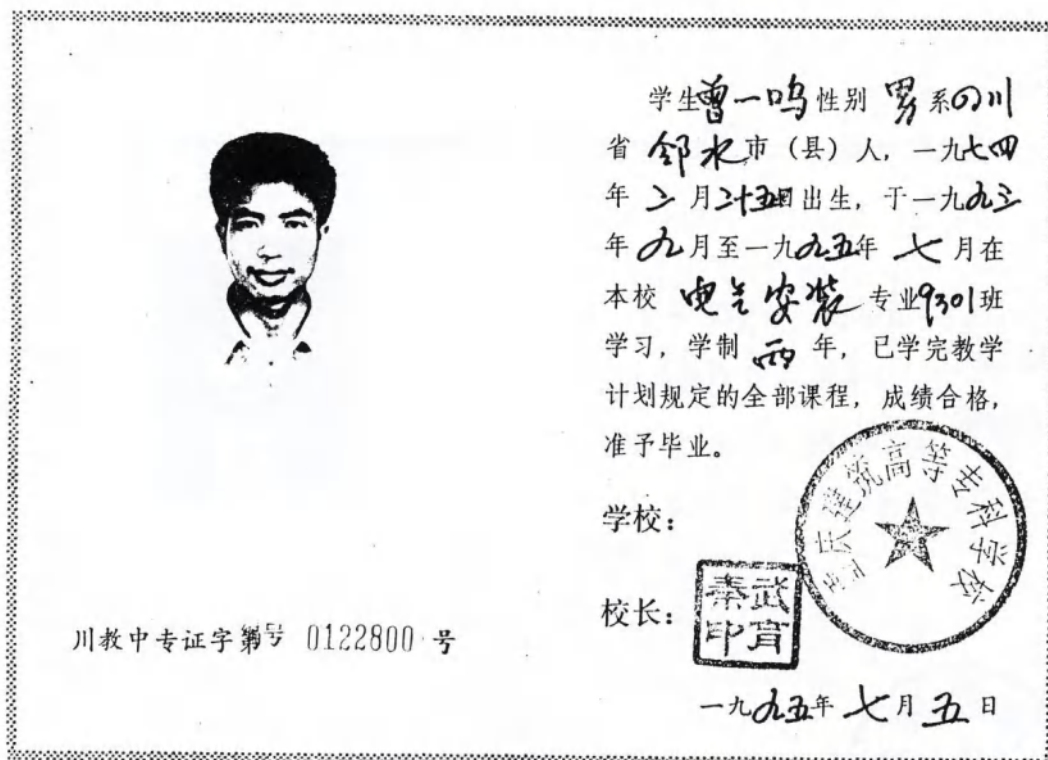 学生曾一鸣性别 男 系四川
省 邻水 市（县）人，一九七四
年 二 月二十五日出生，于一九九三
年 九 月至一九九五年 七 月在
本校 电气安装 专业9301班
学习，学制 两 年，已学完教学
计划规定的全部课程，成绩合格，
准予毕业。
学校：
重庆建筑高等专科学校
校长：
武育
秦印
川教中专证字第 号 0122800 号
一九九五年 七 月 五 日